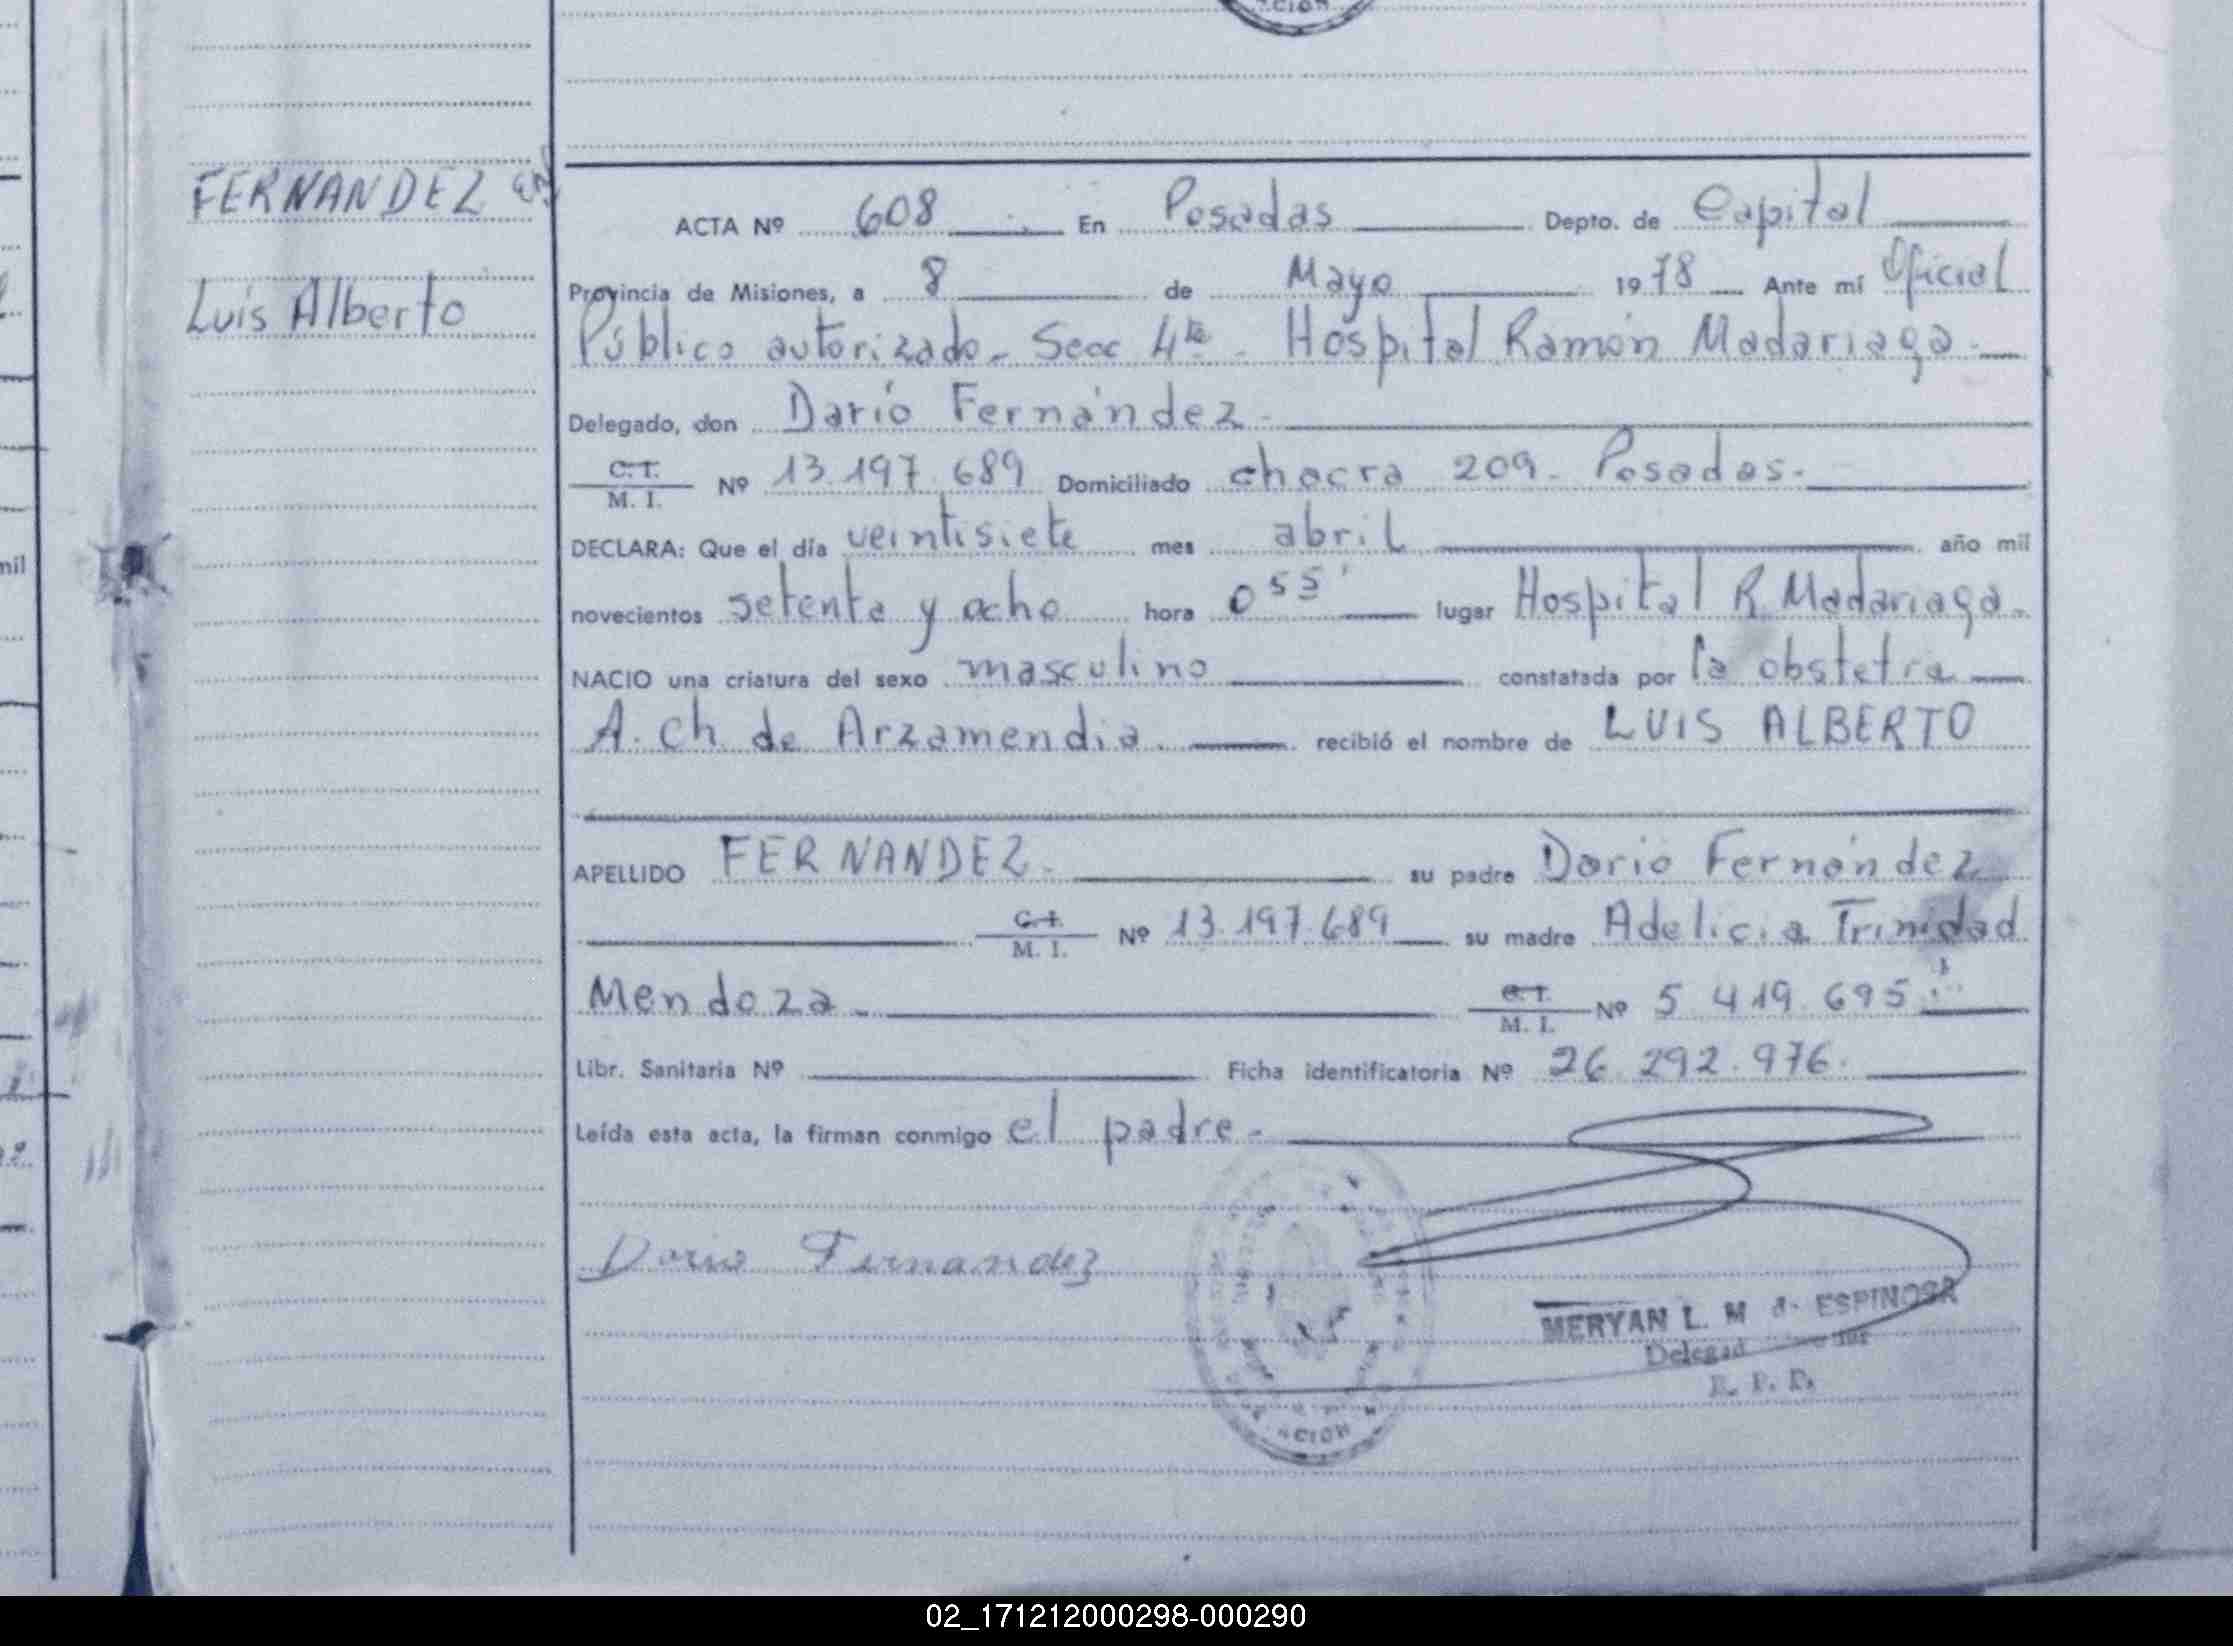 CION
FERNANDEZ
Luis Alberto
ACTA Nº 608 En Posadas Depto. de Capital
Provincia de Misiones, a 8 de Mayo 1978 Ante mí Oficial
Público autorizado. Secc 4ta. Hospital Ramón Madariaga.
Delegado, don Darío Fernández.
C.I. M. I. Nº 13.197.689 Domiciliado chacra 209. Posadas.
DECLARA: Que el día veintisiete mes abril año mil
novecientos setenta y ocho hora 0 55' lugar Hospital R. Madariaga.
NACIO una criatura del sexo masculino constatada por la obstetra
A. Ch. de Arzamendia. recibió el nombre de LUIS ALBERTO
APELLIDO FERNANDEZ. su padre Darío Fernández
C.I. M. I. Nº 13.197.689 su madre Adelicia Trinidad
Mendoza. C.I. M. I. Nº 5.419.695.
Libr. Sanitaria Nº Ficha identificatoria Nº 26.292.976.
Leída esta acta, la firman conmigo el padre.
Dario Fernandez
MERYAN L. M de ESPINOSA
R. P. P.
CION
mil
02_171212000298-000290